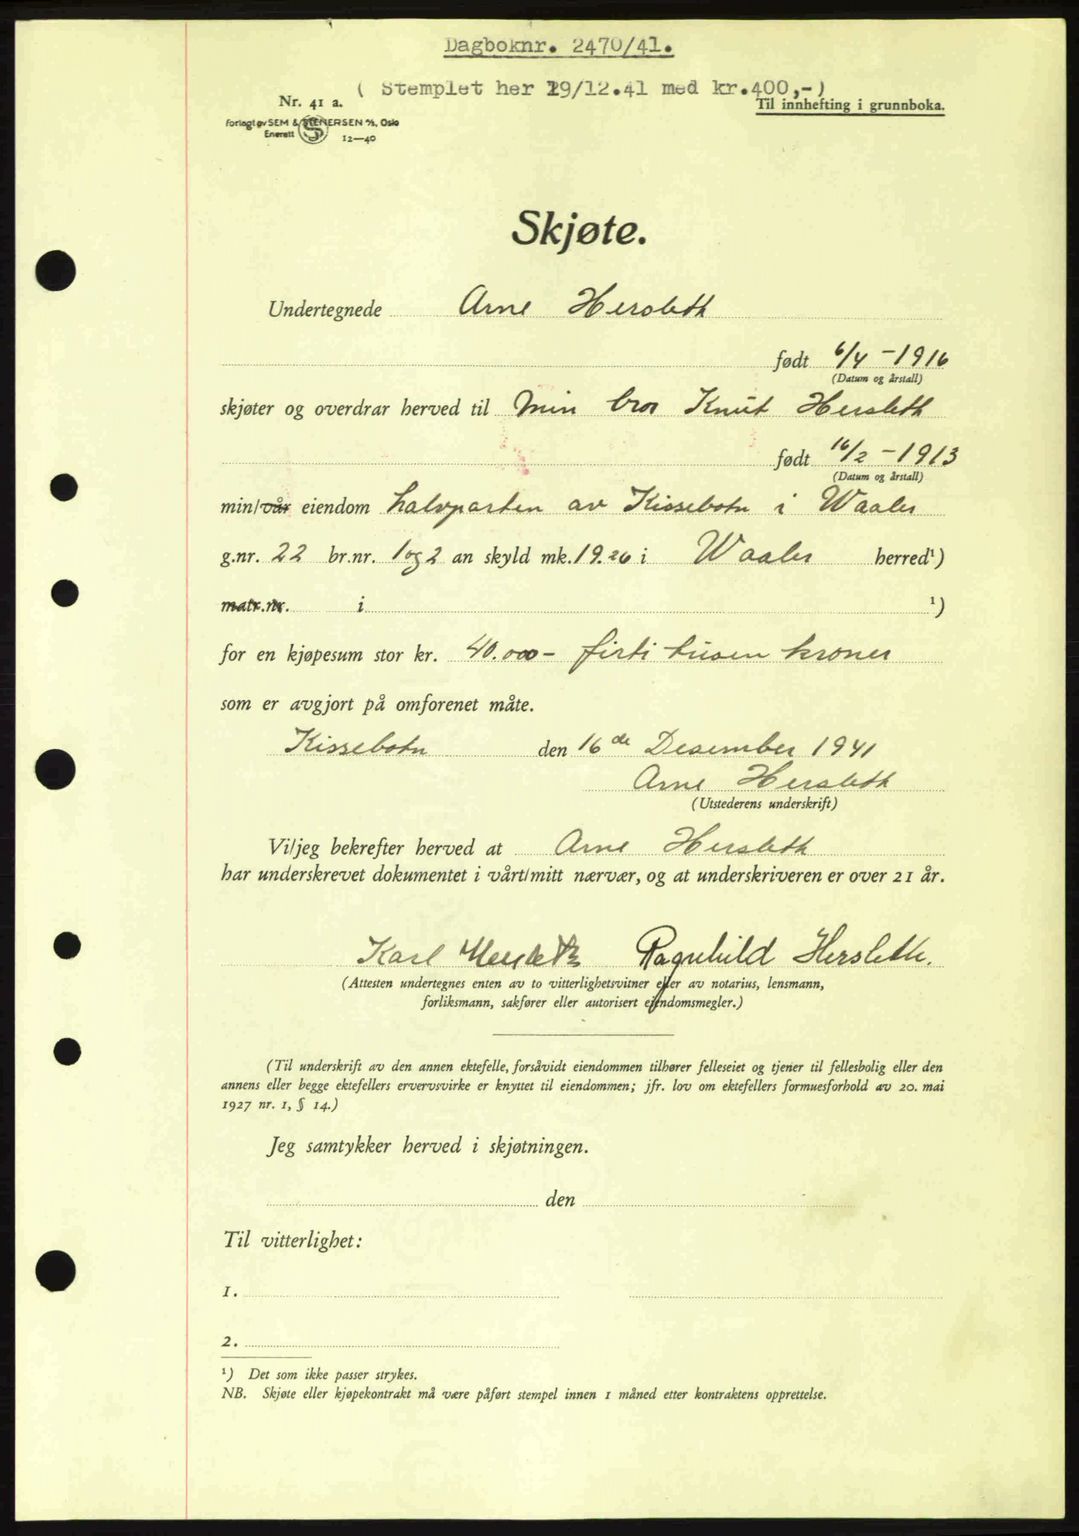 Dagboknr. 2470/41.
( Stemplet her 19/12.41 med kr.400,-)
Nr. 41 a.
Til innhefting i grunnboka.
Forlagt av SEM & STENERSEN A/S, Oslo
Enerett 12—40
Skjøte.
Undertegnede Arne Hersleth
født 6/4 - 1916
(Datum og årstall)
skjøter og overdrar herved til min bror Knut Hersleth
født 16/2 - 1913
(Datum og årstall)
min/vår eiendom halvparten av Kissebotn i Waaler
g.nr. 22 br.nr. 1 og 2 an skyld mk. 19.26 i Waaler herred¹)
matr.nr. i ¹)
for en kjøpesum stor kr. 40.000 - firti tusen kroner
som er avgjort på omforenet måte.
Kissebotn den 16de Desember 1941
Arne Hersleth
(Utstederens underskrift)
Vi/jeg bekrefter herved at Arne Hersleth
har underskrevet dokumentet i vårt/mitt nærvær, og at underskriveren er over 21 år.
Karl Hersleth Ragnhild Hersleth.
(Attesten undertegnes enten av to vitterlighetsvitner eller av notarius, lensmann,
forliksmann, sakfører eller autorisert eiendomsmegler.)
(Til underskrift av den annen ektefelle, forsåvidt eiendommen tilhører felleseiet og tjener til fellesbolig eller den
annens eller begge ektefellers ervervsvirke er knyttet til eiendommen; jfr. lov om ektefellers formuesforhold av 20. mai
1927 nr. 1, § 14.)
Jeg samtykker herved i skjøtningen.
den
Til vitterlighet:
1.
2.
¹) Det som ikke passer strykes.
NB. Skjøte eller kjøpekontrakt må være påført stempel innen 1 måned etter kontraktens opprettelse.